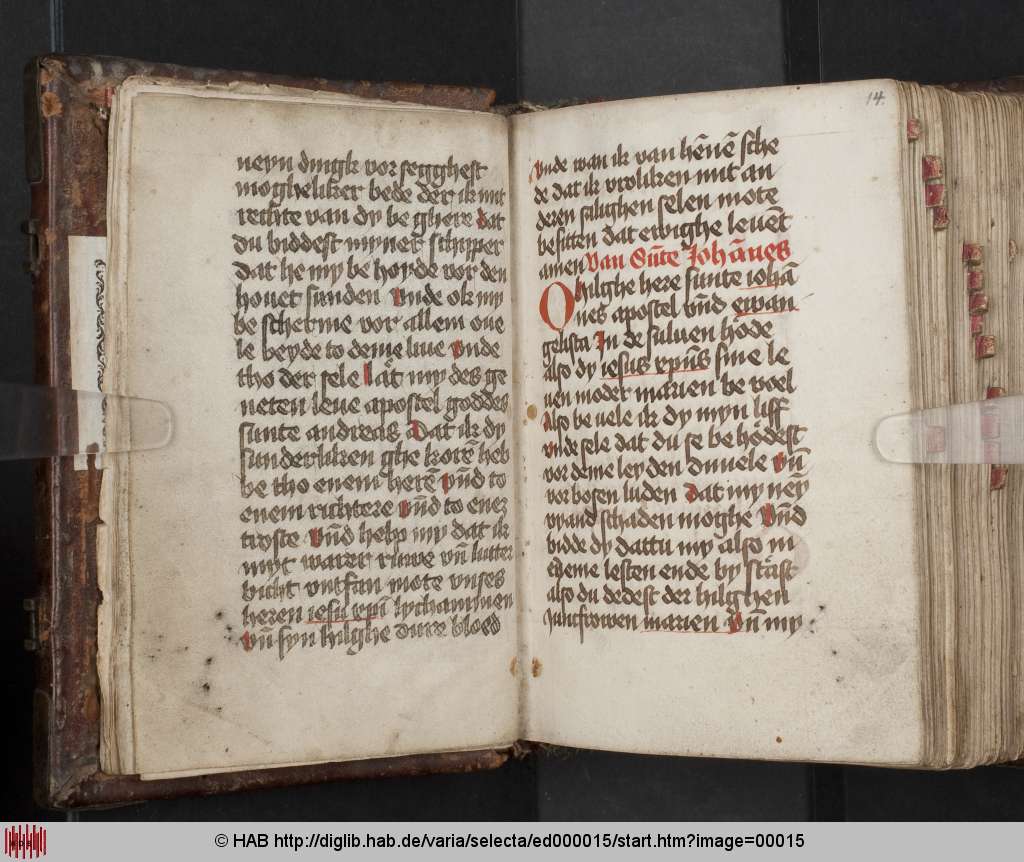 neyn dingk vor segghest
mogheliker bede der ik mit
rechte van dy be ghere dat
du biddest mynen schipper
dat he my be horde vor den
houet sunden Vnde ok my
be scherme vor allem oue
le beyde to deme liue vnde
tho der sele lat my des ge
neten leue apostel goddes
sunte andreas Dat ik dy
sunderliken ghe korē heb
be tho enem herē vn̄d to
enem richtere vn̄d to enez
troste Vn̄d help my dat ik
myt warer ruwe vn̄ lutter
bicht vntfan mote vnses
heren iesu xp̄i lychammen
vn̄ syn hilghe dure bloed
14.
vnde wan ik van hēnē sche
de dat ik vroliken mit an
deren salighen selen mote
besitten dat ewighe leuēt
amen Van Sūte Johānes
O hilghe here sunte iohā
nes apostel vn̄d ewan
gelista In de suluen hode
also dy iesus xp̄us sine le
uen moder marien be voel
Also be uele ik dy myn liff
vnde sele dat du se be hodest
vor deme leyden duuele vn̄
vor bosen luden dat my ney
vyand schaden moghe Vn̄d
bidde dy dattu my also in
myme lesten ende by stast
also du dedest der hilghen
Juncfrowen marien Vn̄ my
© HAB http://diglib.hab.de/varia/selecta/ed000015/start.htm?image=00015